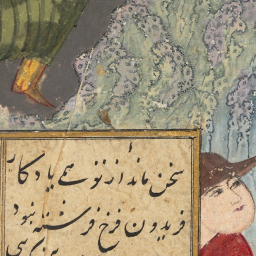 سخن ماند از تو همی یادگار
فریدون فرخ فرشته نبود